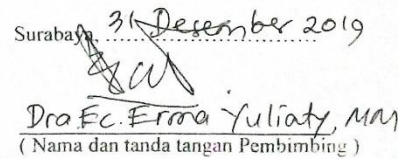 Surabaya, 31 Desember 2019
Dra.Ec. Erma Yuliaty, MM
( Nama dan tanda tangan Pembimbing )